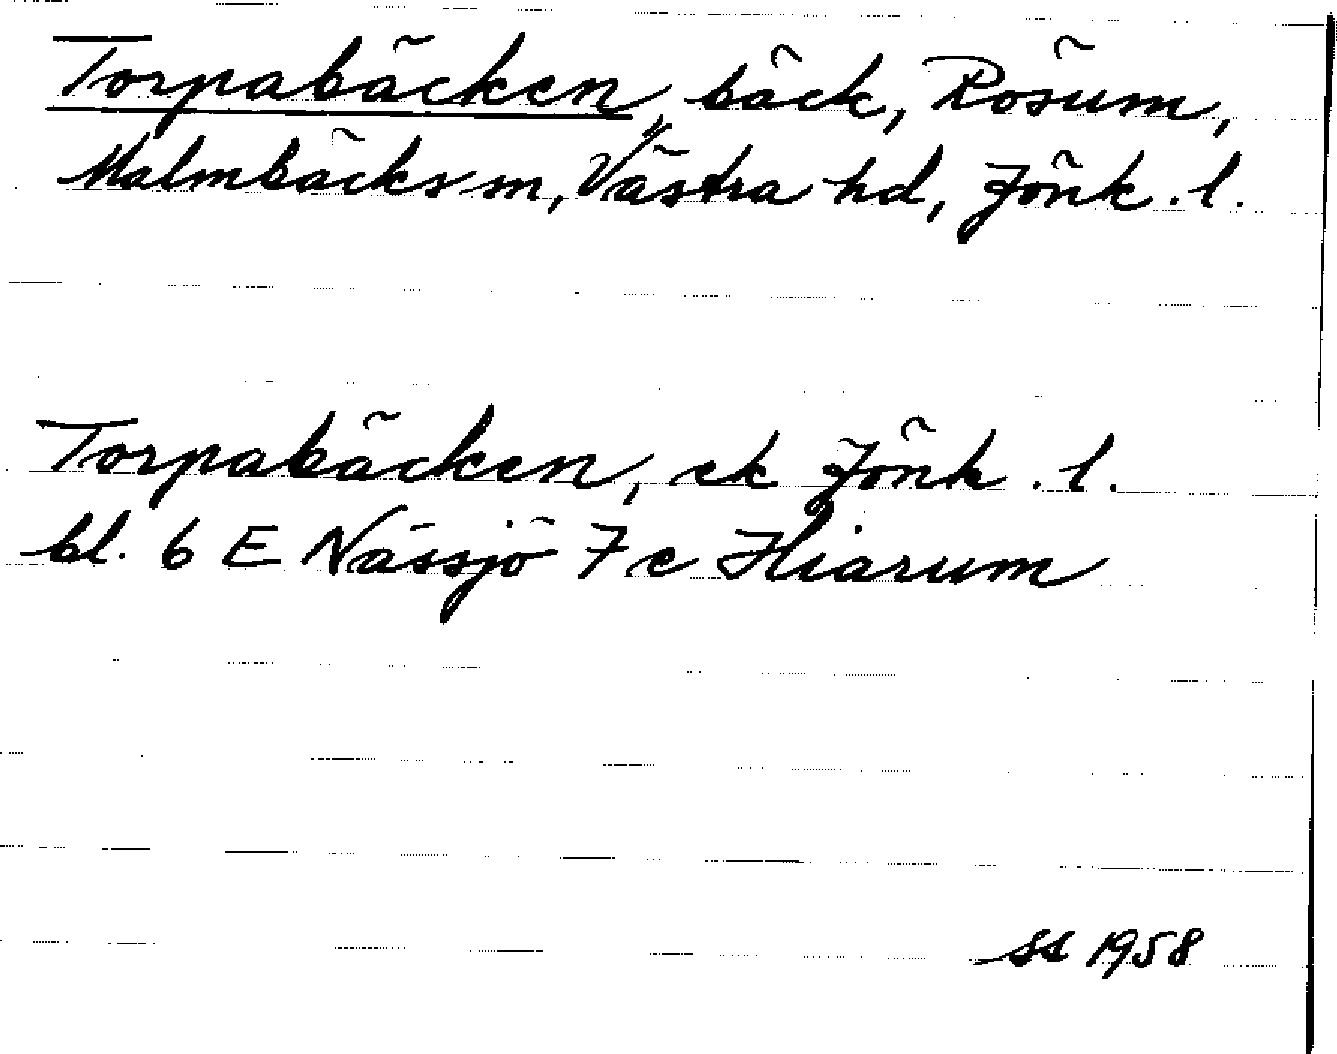 Torpabäcken, bäck, Rösum,
Malmbäcks sn, Västra hd, Jönk. l.
Torpabäcken, ek Jönk. l.
bl. 6 E Nässjö 7 c Hiarum
SS 1958